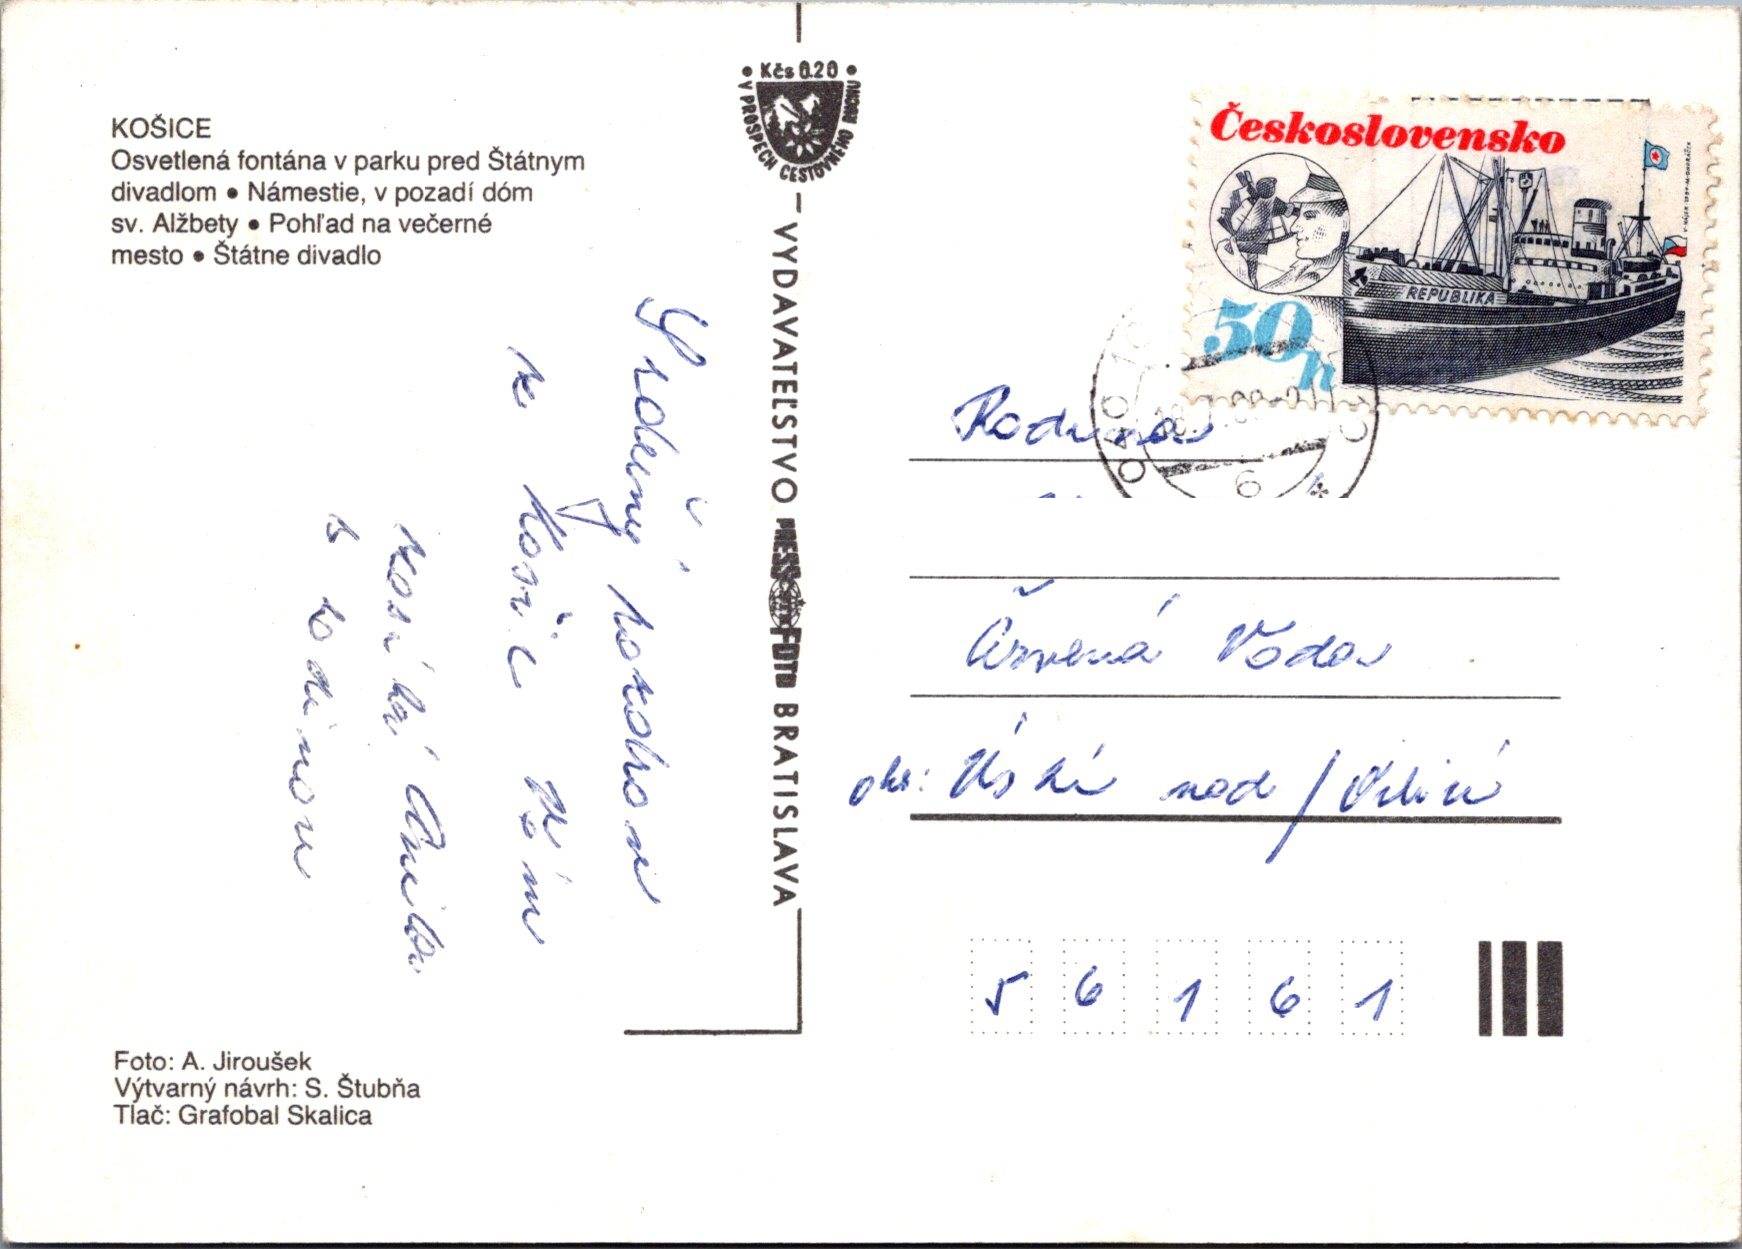 KOŠICE
Osvetlená fontána v parku pred Štátnym
divadlom • Námestie, v pozadí dóm
sv. Alžbety • Pohľad na večerné
mesto • Štátne divadlo
Srdečný pozdrav
z Košic Vám
posílá
s rodinou
Foto: A. Jiroušek
Výtvarný návrh: S. Štubňa
Tlač: Grafobal Skalica
• Kčs 0.20 •
V PROSPECH CESTOVNÉHO RUCHU
VYDAVATEĽSTVO PRESSFOTO BRATISLAVA
Československo
REPUBLIKA
50h
040 10
Rodina
Červená Voda
okr: Ústí nad / Orlicí
5 6 1 6 1